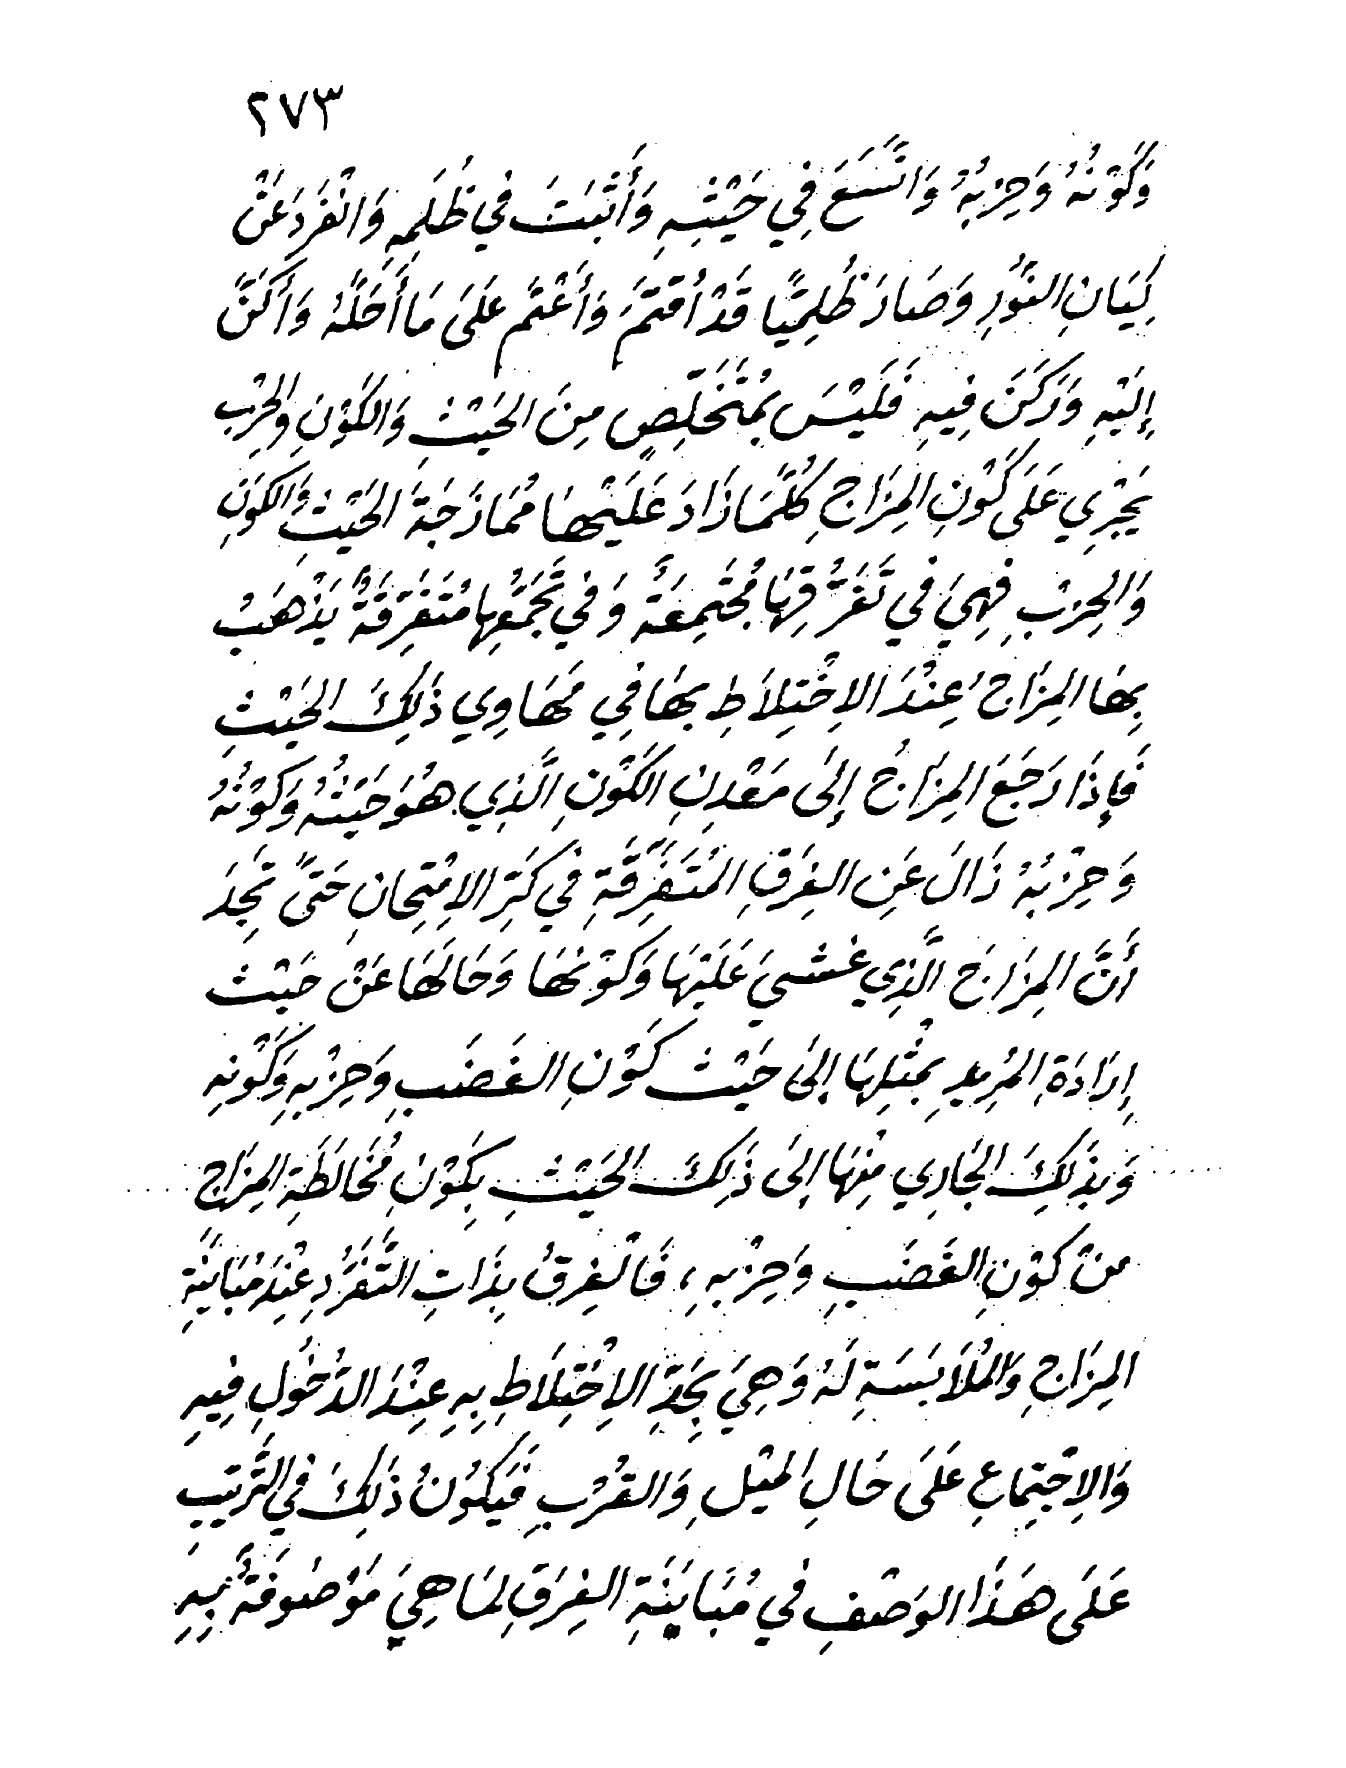 ٢٧٣
وَكَوْنُهُ وَحِزْبُهُ وَاتَّسَعَ فِي حَيْثِهِ وَأَثْبَتَ في ظُلَمِهِ وَانْفَرَدَ عَنْ
لِيَانِ النُّورِ وَصَارَ ظُلْمِيًّا قَدْ اُقْتَمَّ وَأَعْتَمَّ عَلَى مَا أَحَلَّهُ وَأَكَنَّ
إِلَيْهِ وَرَكَنَ فِيهِ فَلَيْسَ بِمُتَخَلِّصٍ مِنَ الحَيْثِ وَالكَوْنِ وَالحِزْبِ
يَجْرِي عَلَى كَوْنِ المِزَاجِ كُلَّمَا زَادَ عَلَيْهَا مُمَازَجَةَ الحَيْثِ وَالكَوْنِ
وَالحِزْبِ فَهِيَ في تَفَرُّقِهَا مُجْتَمِعَةٌ وَفي تَجَمُّعِهَا مُتَفَرِّقَةٌ يَذْهَبُ
بِهَا المِزَاجُ عِنْدَ الاِخْتِلَاطِ بِهَا فِي مَهَاوِي ذَلِكَ الحَيْثِ
فَإِذَا رَجَعَ المِزَاجُ إِلَى مَعْدِنِ الكَوْنِ الَّذِي هُوَ حَيْثُهُ وَكَوْنُهُ
وَحِزْبُهُ زَالَ عَنِ الفِرَقِ المُتَفَرِّقَةِ في كَرِّ الاِمْتِحَانِ حَتَّى تَجِدَ
أَنَّ المِزَاجَ الَّذِي غَشِيَ عَلَيْهَا وَكَوْنَهَا وَحَالَهَا عَنْ حَيْثِ
إِرَادَةِ المُرِيدِ بِمُثْلِهَا إِلَى حَيْثِ كَوْنِ الغَضَبِ وَحِزْبِهِ وَكَوْنِهِ
وَبِذَلِكَ الجَارِي مِنْهَا إِلَى ذَلِكَ الحَيْثِ بِكَوْنِ مُخَالَطَةِ المِزَاجِ
مِنْ كَوْنِ الغَضَبِ وَحِزْبِهِ، فَالْفِرَقُ بِذَاتِ التَّفَرُّدِ عِنْدَ مُبَايَنَةِ
المِزَاجِ وَالمُلَابَسَةِ لَهُ وَهِيَ بِحَدِّ الاِخْتِلَاطِ بِهِ عِنْدَ الدُّخُولِ فِيهِ
وَالاِجْتِمَاعِ عَلَى حَالِ المَيْلِ وَالقُرْبِ فَيَكُونُ ذَلِكَ في التَّرْتِيبِ
عَلَى هَذَا الوَصْفِ في مُبَايَنَةِ الفِرَقِ لِمَا هِيَ مَوْصُوفَةٌ بِهِ